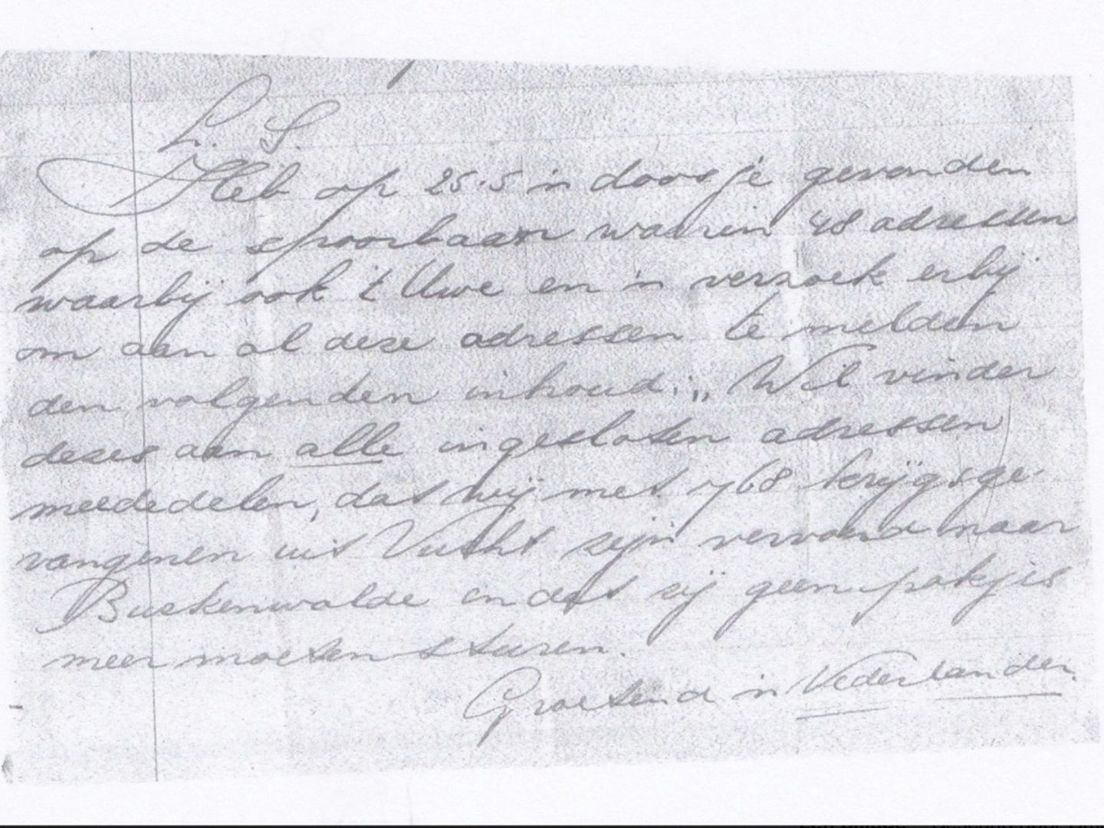 L. S.
Heb op 25.5 'n doosje gevonden
op de spoorbaan waarin 48 adressen
waarbij ook 't Uwe en 'n verzoek erbij
om aan al deze adressen te melden
den volgenden inhoud: „Wil vinder
dezes aan alle ingesloten adressen
meededelen, dat wij met 768 krijgsge-
vangenen uit Vught zijn vervoerd naar
Buckenwalde en dat zij geen pakjes
meer moeten sturen.
Groetend 'n Nederlander.